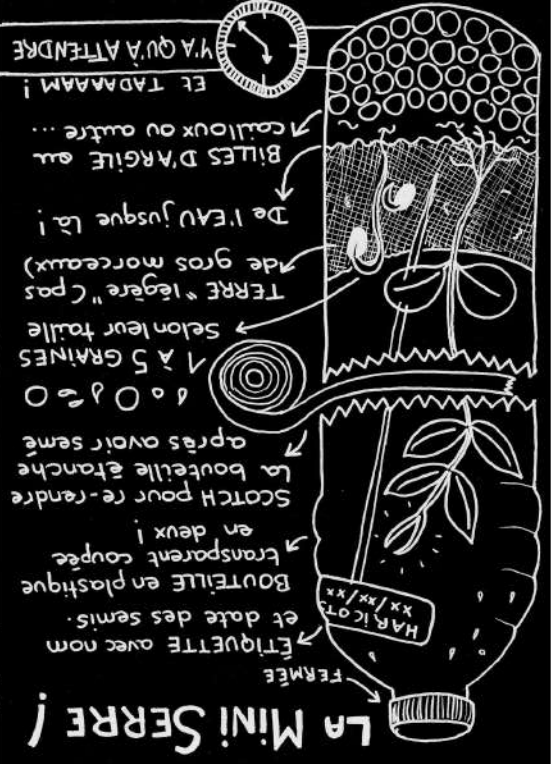 LA MiNi SERRE !
FERMÉE
ÉTiQUETTE avec nom
et date des semis.
HARiCOTS
xx/xx/xx
BOUTEiLLE en plastique
transparent coupée
en deux !
SCOTCH pour re-rendre
la bouteille étanche
après avoir semé
1 À 5 GRAiNES
Selon leur taille
TERRE "légère" (pas
de gros morceaux)
De l'EAU jusque là !
BiLLES D'ARGiLE ou
cailloux ou autre ...
ET TADAAAAM !
Y'A QU'À ATTENDRE